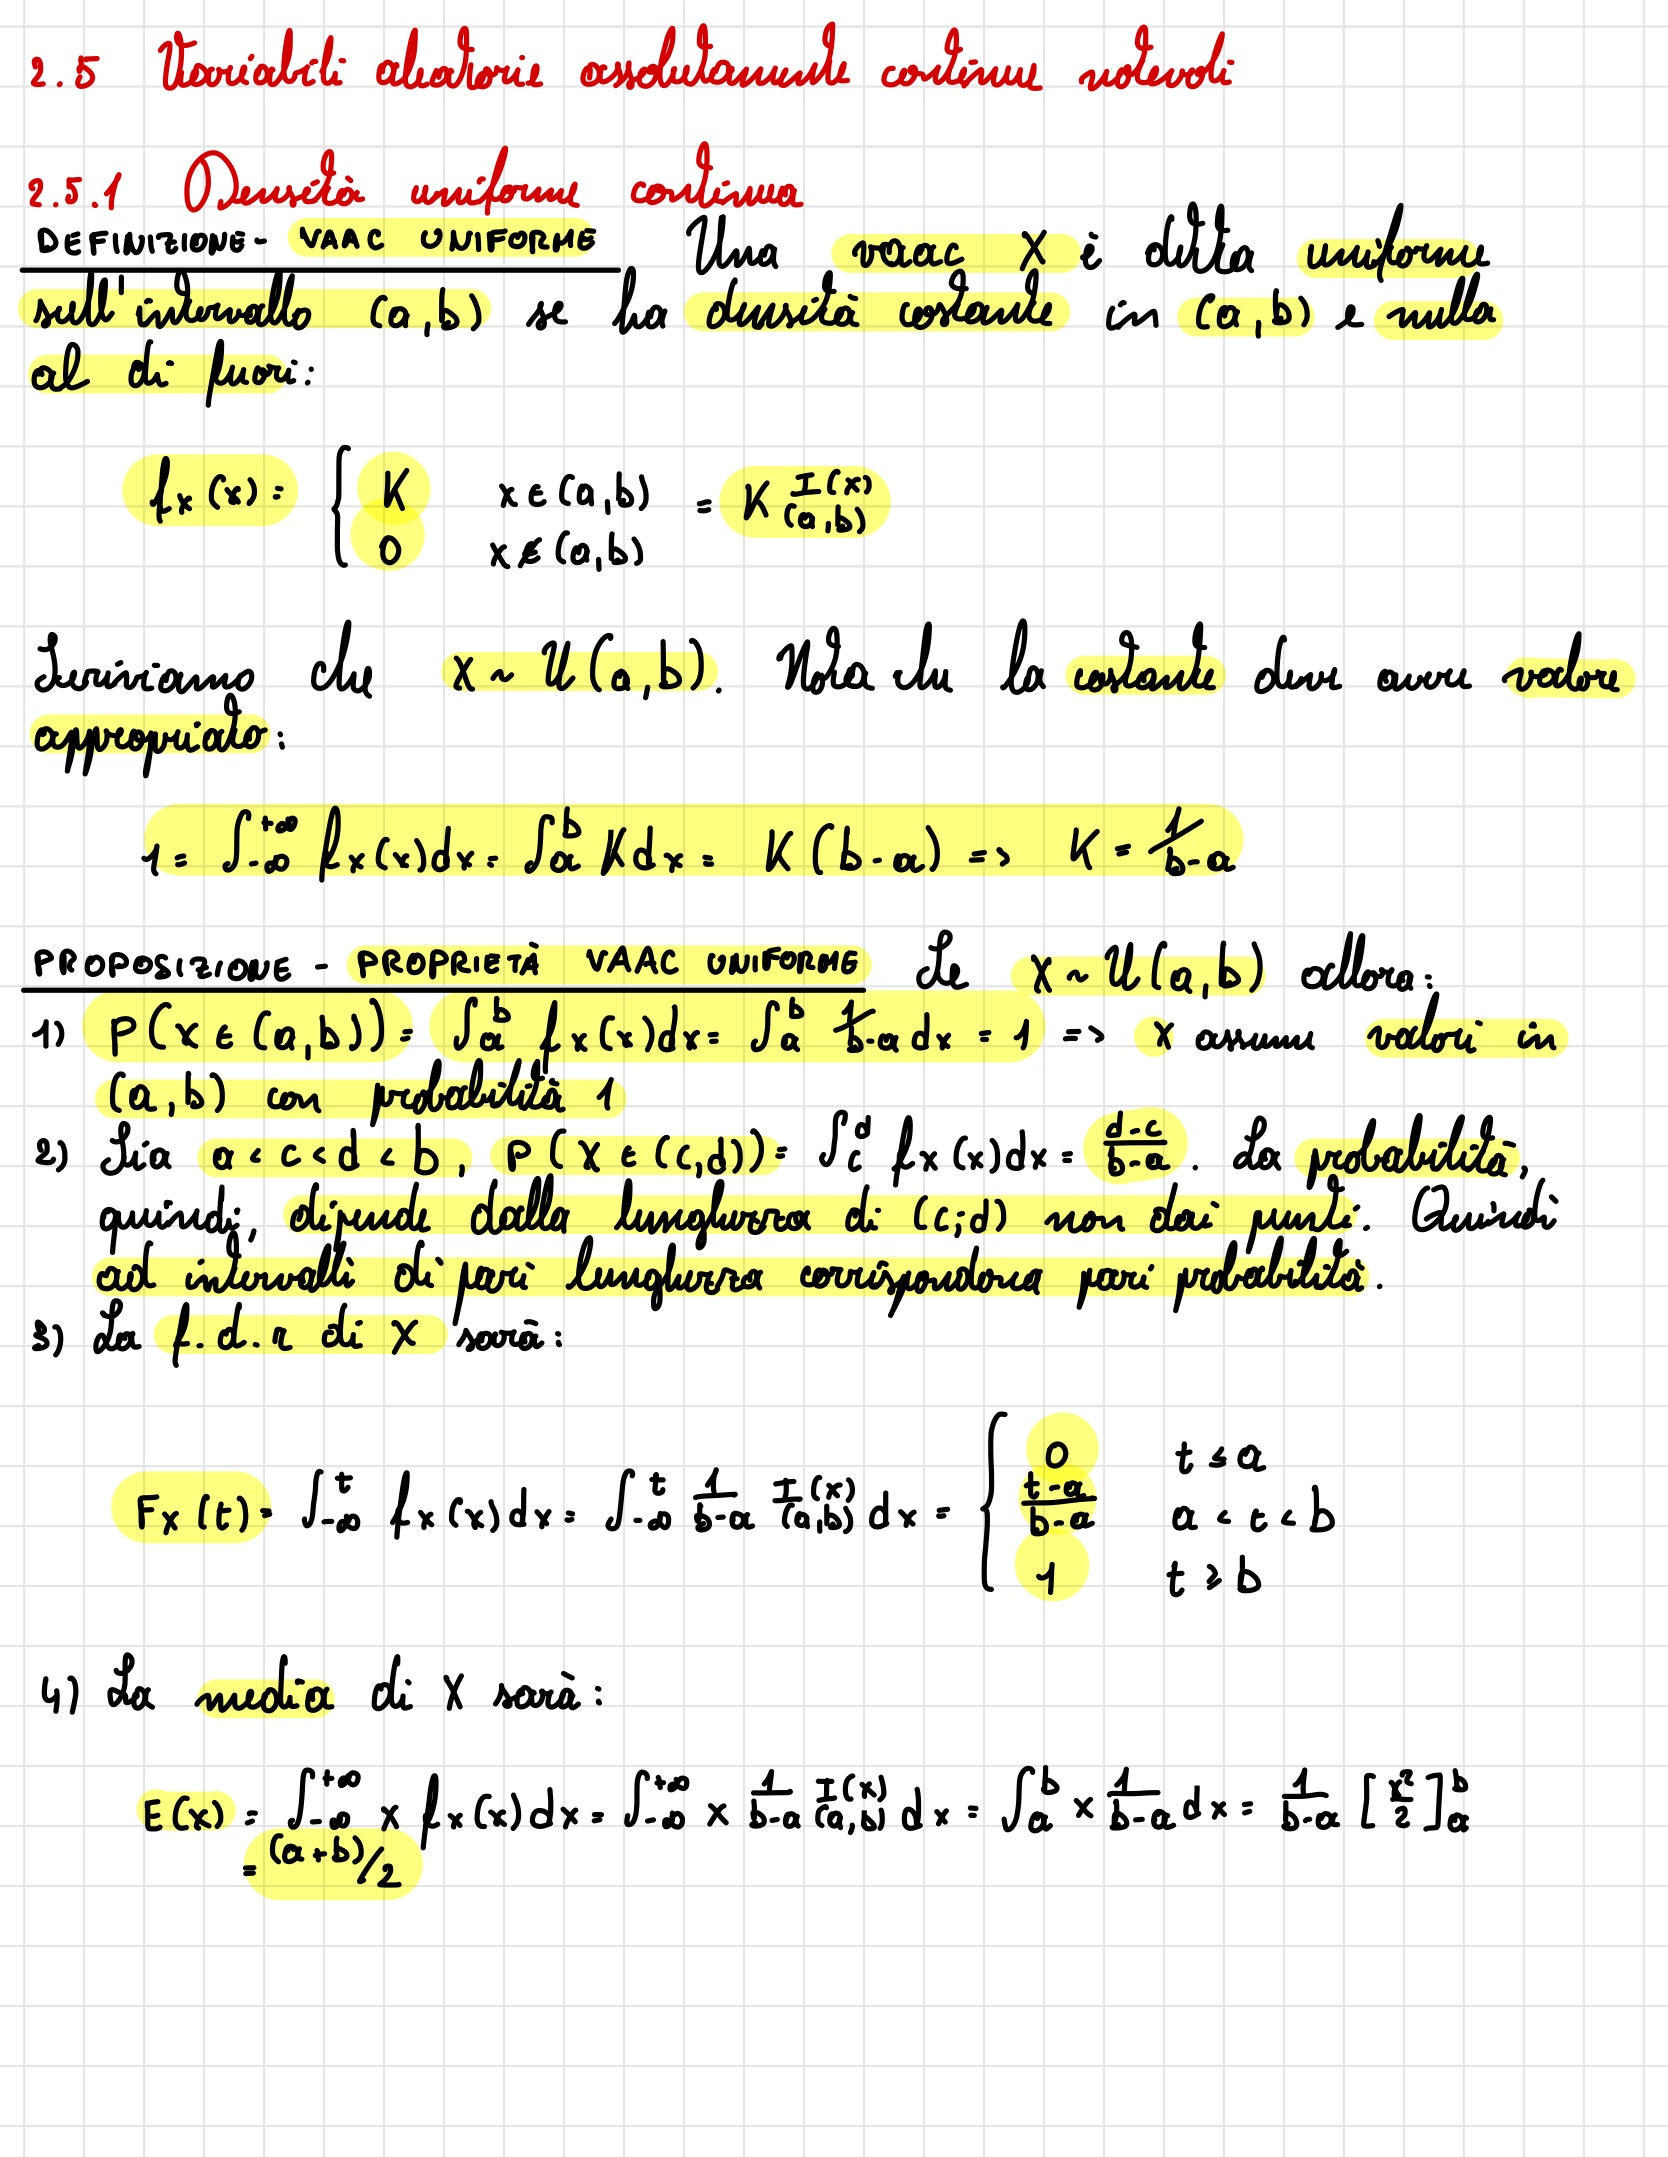 2.5 Variabili aleatorie assolutamente continue notevoli
2.5.1 Densità uniforme continua
DEFINIZIONE - VAAC UNIFORME Una vaac X è detta uniforme
sull'intervallo (a,b) se ha densità costante in (a,b) e nulla
al di fuori:
fx(x) = { K x ∈ (a,b) = K I(x) (a,b)
0 x ∉ (a,b)
Scriviamo che X ~ U(a,b). Nota che la costante deve avere valore
appropriato:
1 = ∫-∞^+∞ fx(x)dx = ∫a^b Kdx = K(b-a) => K = 1/b-a
PROPOSIZIONE - PROPRIETÀ VAAC UNIFORME Se X ~ U(a,b) allora:
1) P(X ∈ (a,b)) = ∫a^b fx(x)dx = ∫a^b 1/b-a dx = 1 => X assume valori in
(a,b) con probabilità 1
2) Sia a < c < d < b, P(X ∈ (c,d)) = ∫c^d fx(x)dx = d-c/b-a. La probabilità,
quindi, dipende dalla lunghezza di (c;d) non dai punti. Quindi
ad intervalli di pari lunghezza corrispondona pari probabilità.
3) La f.d.r di X sarà:
Fx(t) = ∫-∞^t fx(x)dx = ∫-∞^t 1/b-a I(x) (a,b) dx = { 0 t ≤ a
t-a/b-a a < t < b
1 t ≥ b
4) La media di X sarà:
E(X) = ∫-∞^+∞ x fx(x)dx = ∫-∞^+∞ x 1/b-a I(x) (a,b) dx = ∫a^b x 1/b-a dx = 1/b-a [x²/2]a^b
= (a+b)/2